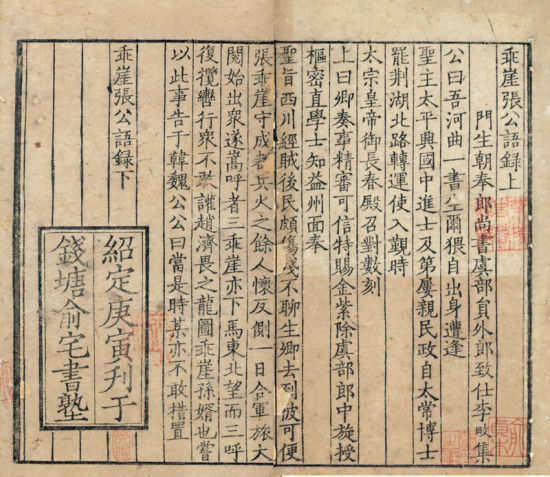 乖崖張公語録上
門生朝奉郎尚書虞部貟外郎致仕李畋集
公曰吾河曲一書生爾猥自出身遭逢
聖主太平興國中進士及第屢親民政自太常博士
罷判湖北路轉運使入覲時
太宗皇帝御長春殿召對數刻
上曰卿奏事精審可信特賜金紫除虞部郎中旋授
樞密直學士知益州面奉
聖旨西川經賊後民頗傷殘不聊生卿去到彼可便
張乖崖守成都兵火之餘人懷反側一日合軍旅大
閱始出衆遂嵩呼者三乖崖亦下馬東北望而三呼
復攬轡行衆不敢讙趙濟畏之龍圖乖崖孫婿也嘗
以此事告于韓魏公公曰當是時某亦不敢措置
乖崖張公語録下
紹定庚寅刋于
錢塘俞宅書塾